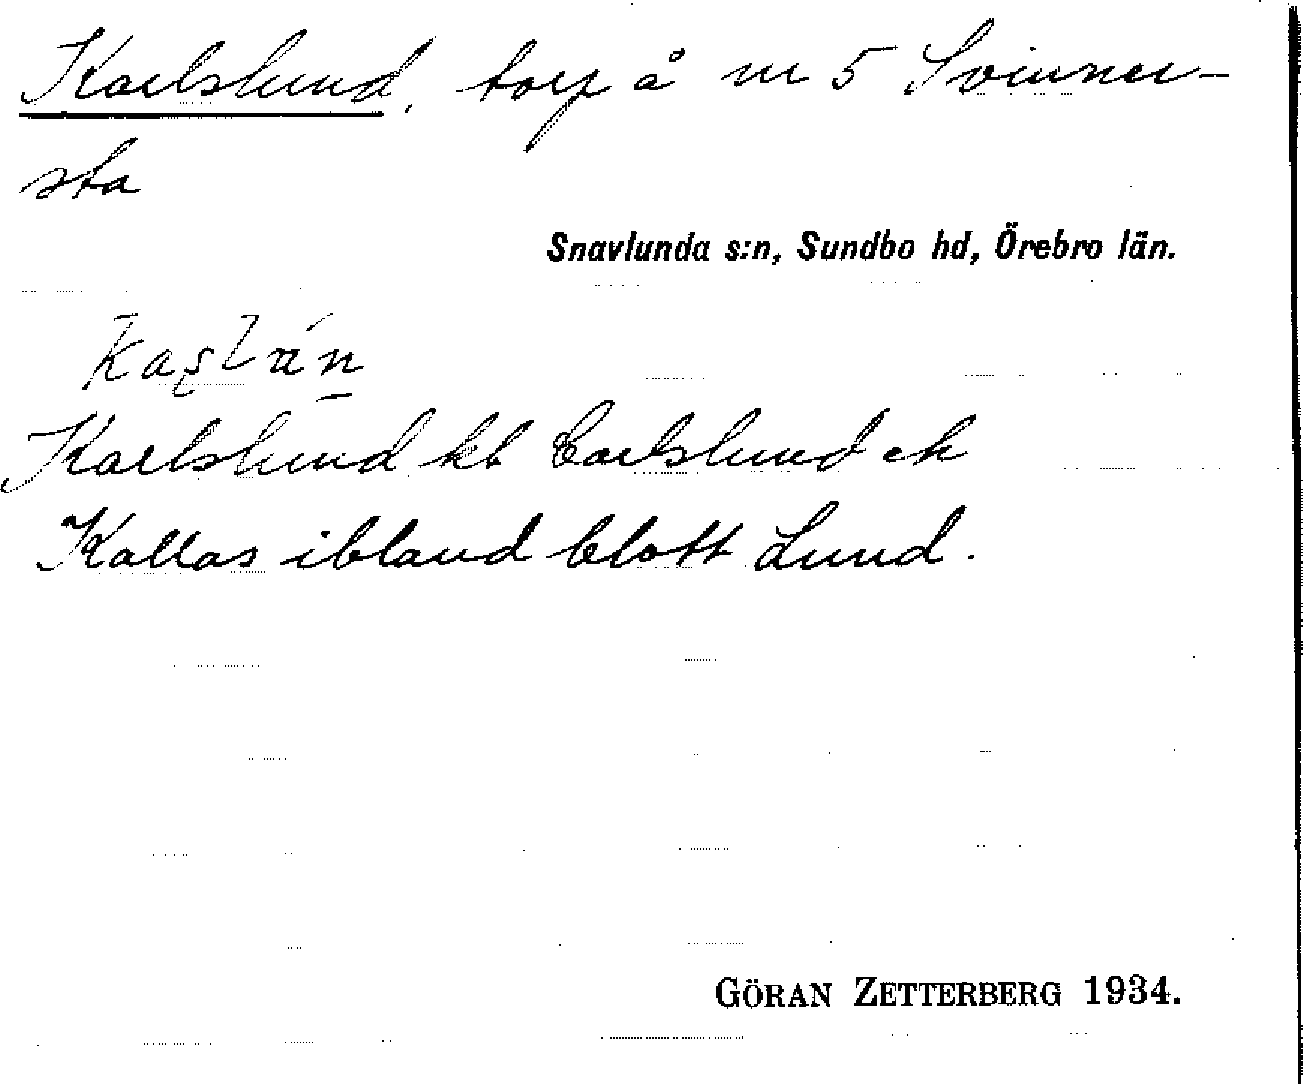 Karlslund, torp å nr 5 Svinner-
sta
Snavlunda s:n, Sundbo hd, Örebro län.
Karlslund kb Carlslund ek
Kallas ibland blott Lund.
GÖRAN ZETTERBERG 1934.